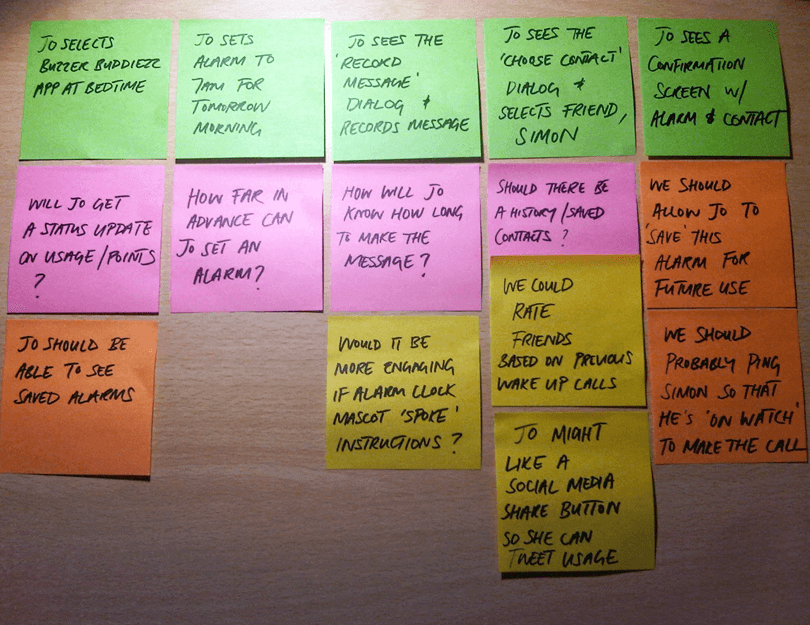 JO SELECTS
BUZZER BUDDIEZZ
APP AT BEDTIME
JO SETS
ALARM TO
7AM FOR
TOMORROW
MORNING
JO SEES THE
'RECORD
MESSAGE'
DIALOG &
RECORDS MESSAGE
JO SEES THE
'CHOOSE CONTACT'
DIALOG &
SELECTS FRIEND,
SIMON
JO SEES A
CONFIRMATION
SCREEN W/
ALARM & CONTACT
WILL JO GET
A STATUS UPDATE
ON USAGE/POINTS
?
HOW FAR IN
ADVANCE CAN
JO SET AN
ALARM?
HOW WILL JO
KNOW HOW LONG
TO MAKE THE
MESSAGE?
SHOULD THERE BE
A HISTORY/SAVED
CONTACTS?
WE SHOULD
ALLOW JO TO
'SAVE' THIS
ALARM FOR
FUTURE USE
JO SHOULD BE
ABLE TO SEE
SAVED ALARMS
WOULD IT BE
MORE ENGAGING
IF ALARM CLOCK
MASCOT 'SPOKE'
INSTRUCTIONS?
WE COULD
RATE
FRIENDS
BASED ON PREVIOUS
WAKE UP CALLS
WE SHOULD
PROBABLY PING
SIMON SO THAT
HE'S 'ON WATCH'
TO MAKE THE CALL
JO MIGHT
LIKE A
SOCIAL MEDIA
SHARE BUTTON
SO SHE CAN
TWEET USAGE